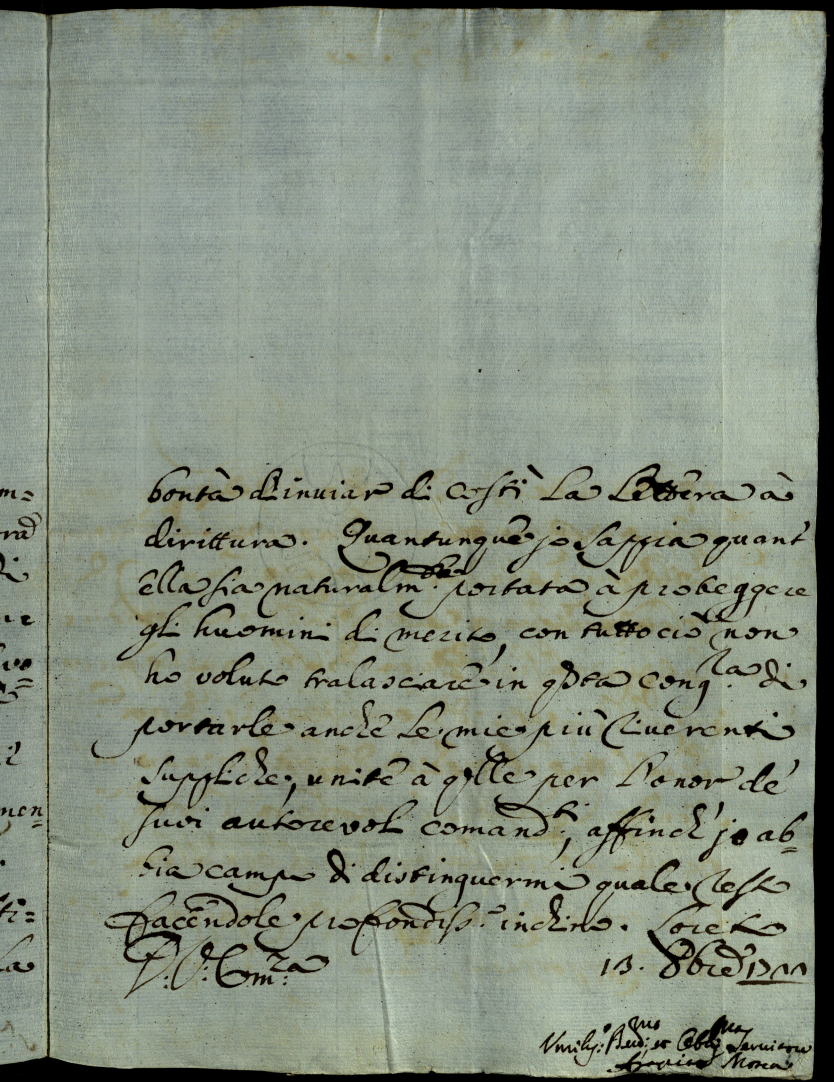 bontà d'inuiar di costì la lettera à
dirittura. Quantunque jo sappia quant'
ella sia naturalm.te portata à proteggere
gli huomini di merito, con tuttociò non
ho voluto tralasciare in q̃sta cong.ra di
portarle anche le mie più riuerenti
suppliche, unite à q̃lle per l'onor de'
suoi autorevoli comand.ti, affinch'jo ab=
bia campo di distinguermi quale resto
facendole profondiss.o inchino. Loreto
V: S: Em:za 13. 8bre
Vmilis:o Deu:mo et Obb:mo Seruitore
Mosca
m=
di
men=
ti=
la